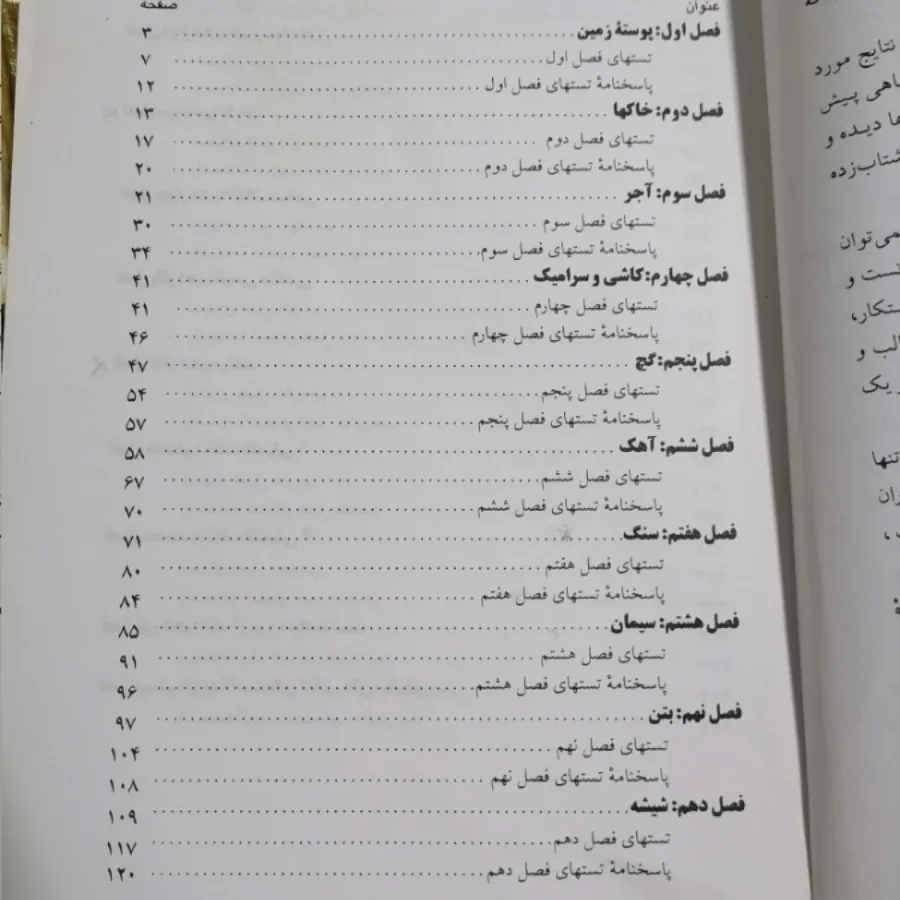 عنوان صفحه
فصل اول: پوستهٔ زمین ۳
تستهای فصل اول ۷
پاسخنامهٔ تستهای فصل اول ۱۲
فصل دوم: خاکها ۱۳
تستهای فصل دوم ۱۷
پاسخنامهٔ تستهای فصل دوم ۲۰
فصل سوم: آجر ۲۱
تستهای فصل سوم ۳۰
پاسخنامهٔ تستهای فصل سوم ۳۴
فصل چهارم: کاشی و سرامیک ۴۱
تستهای فصل چهارم ۴۱
پاسخنامهٔ تستهای فصل چهارم ۴۶
فصل پنجم: گچ ۴۷
تستهای فصل پنجم ۵۴
پاسخنامهٔ تستهای فصل پنجم ۵۷
فصل ششم: آهک ۵۸
تستهای فصل ششم ۶۷
پاسخنامهٔ تستهای فصل ششم ۷۰
فصل هفتم: سنگ ۷۱
تستهای فصل هفتم ۸۰
پاسخنامهٔ تستهای فصل هفتم ۸۴
فصل هشتم: سیمان ۸۵
تستهای فصل هشتم ۹۱
پاسخنامهٔ تستهای فصل هشتم ۹۶
فصل نهم: بتن ۹۷
تستهای فصل نهم ۱۰۴
پاسخنامهٔ تستهای فصل نهم ۱۰۸
فصل دهم: شیشه ۱۰۹
تستهای فصل دهم ۱۱۷
پاسخنامهٔ تستهای فصل دهم ۱۲۰
نتایج مورد
اهی پیش
ها دیده و
شتاب‌زده
می‌توان
نست و
ستکار،
الب و
ر یک
تنها
ران